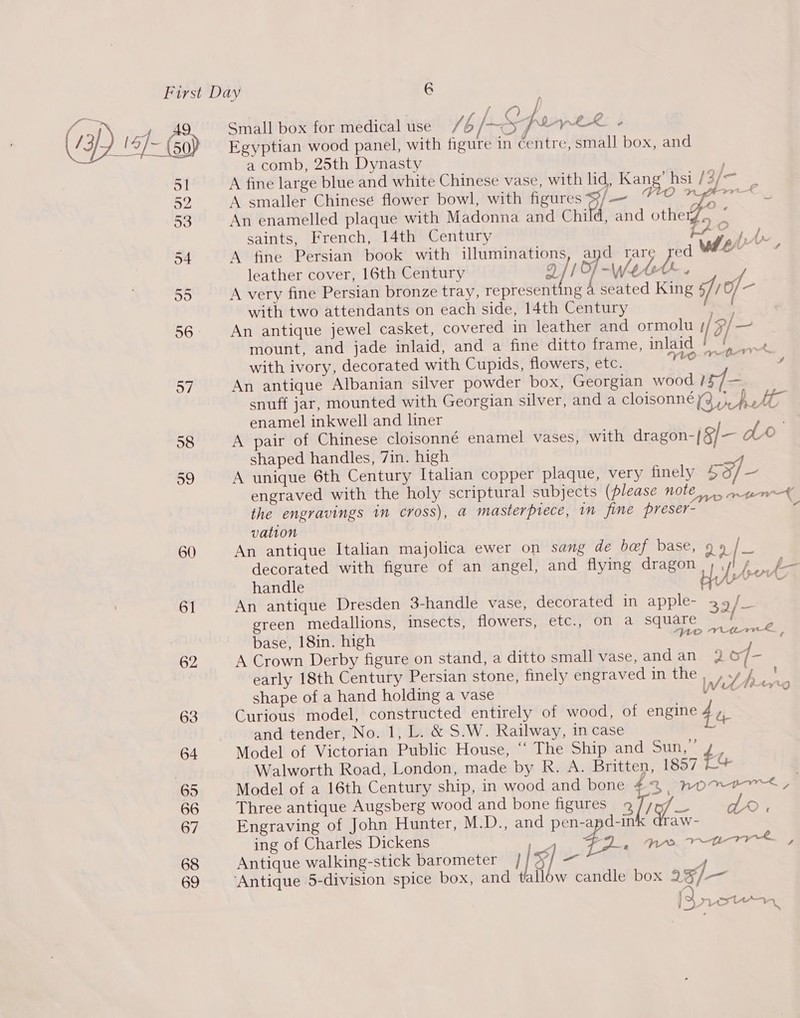 First Day 6
49 Small box for medical use 16/-
(13/) 15/- (50) Egyptian wood panel, with figure in centre, small box, and
a comb, 25th Dynasty
51 A fine large blue and white Chinese vase, with lid, Kang' hsi 13/-
52 A smaller Chinese flower bowl, with figures 5/- no name
53 An enamelled plaque with Madonna and Child, and other
saints, French, 14th Century
54 A fine Persian book with illuminations, and rare red
leather cover, 16th Century
55 A very fine Persian bronze tray, representing a seated King
with two attendants on each side, 14th Century
56 An antique jewel casket, covered in leather and ormolu
mount, and jade inlaid, and a fine ditto frame, inlaid
with ivory, decorated with Cupids, flowers, etc. no name
57 An antique Albanian silver powder box, Georgian wood 15/-
snuff jar, mounted with Georgian silver, and a cloisonné
enamel inkwell and liner
58 A pair of Chinese cloisonné enamel vases, with dragon- 18/- do
shaped handles, 7in. high
59 A unique 6th Century Italian copper plaque, very finely
engraved with the holy scriptural subjects (please note no name
the engravings in cross), a masterpiece, in fine preser-
vation
60 An antique Italian majolica ewer on sang de bœf base, 22/-
decorated with figure of an angel, and flying dragon
handle
61 An antique Dresden 3-handle vase, decorated in apple- 32/-
green medallions, insects, flowers, etc., on a square
base, 18in. high no name
62 A Crown Derby figure on stand, a ditto small vase, and an 20/-
early 18th Century Persian stone, finely engraved in the
shape of a hand holding a vase
63 Curious model, constructed entirely of wood, of engine
and tender, No. 1, L. & S.W. Railway, in case
64 Model of Victorian Public House, “ The Ship and Sun,”
Walworth Road, London, made by R. A. Britten, 1857
65 Model of a 16th Century ship, in wood and bone £3, no name
66 Three antique Augsberg wood and bone figures do.
67 Engraving of John Hunter, M.D., and pen-and-ink draw-
ing of Charles Dickens £2, no name
68 Antique walking-stick barometer
69 ‘Antique 5-division spice box, and tallow candle box 28/-
Brown